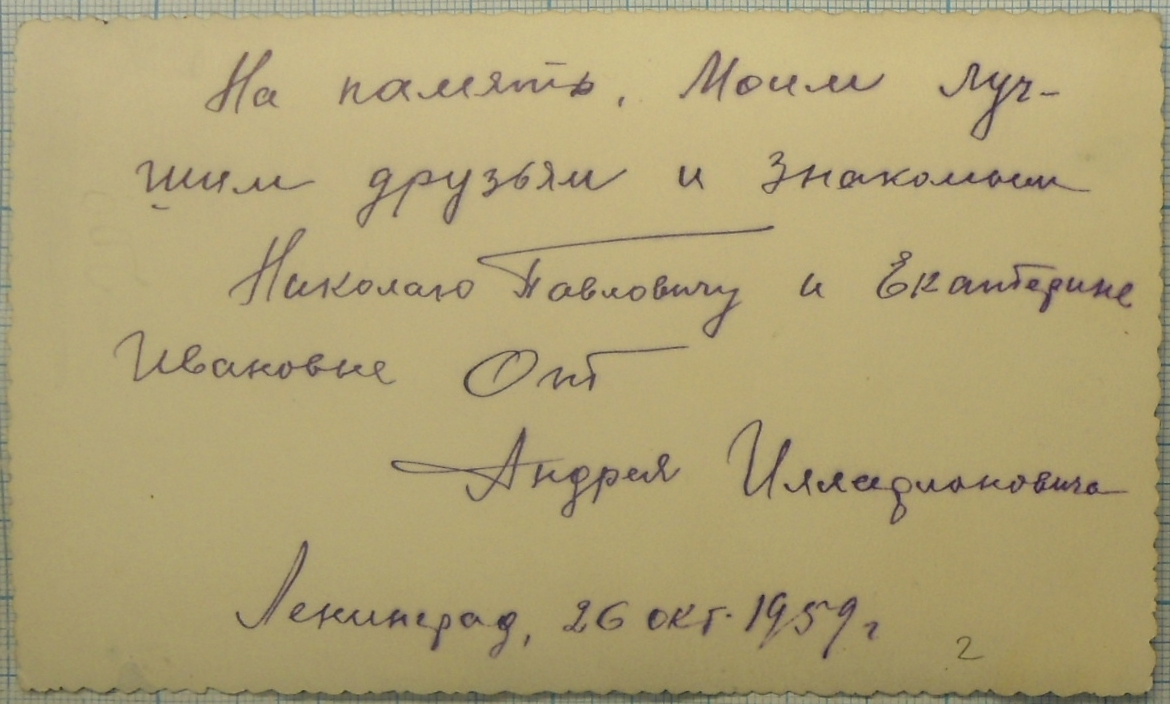 На память. Моим луч-
шим друзьям и знакомым
Николаю Павловичу и Екатерине
Ивановне От
Андрея Илларионовича
Ленинград, 26 окт. 1959 г
2